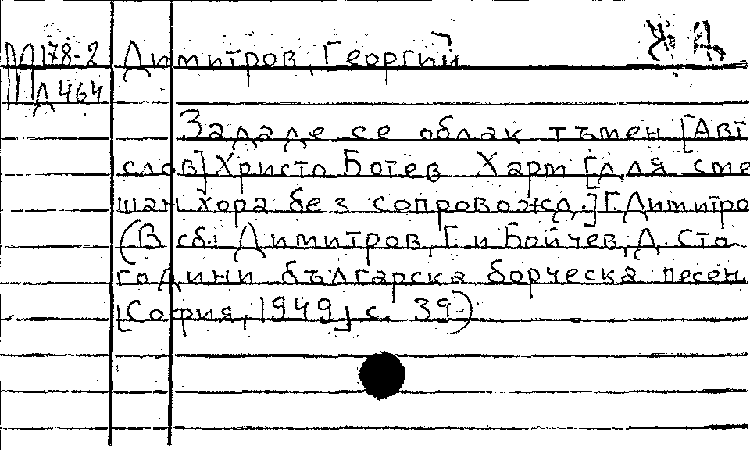 П178-2 Димитров, Георгий
Д464
Зададе се облак тъмен [Авт.
слов] Христо Ботев Харм [для сме
шан. хора без сопровожд.] Г. Димитро
(В сб. Димитров, Г. и Бойчев, Д. Сто
години българска борческа песен.
[София, 1949] с. 39)